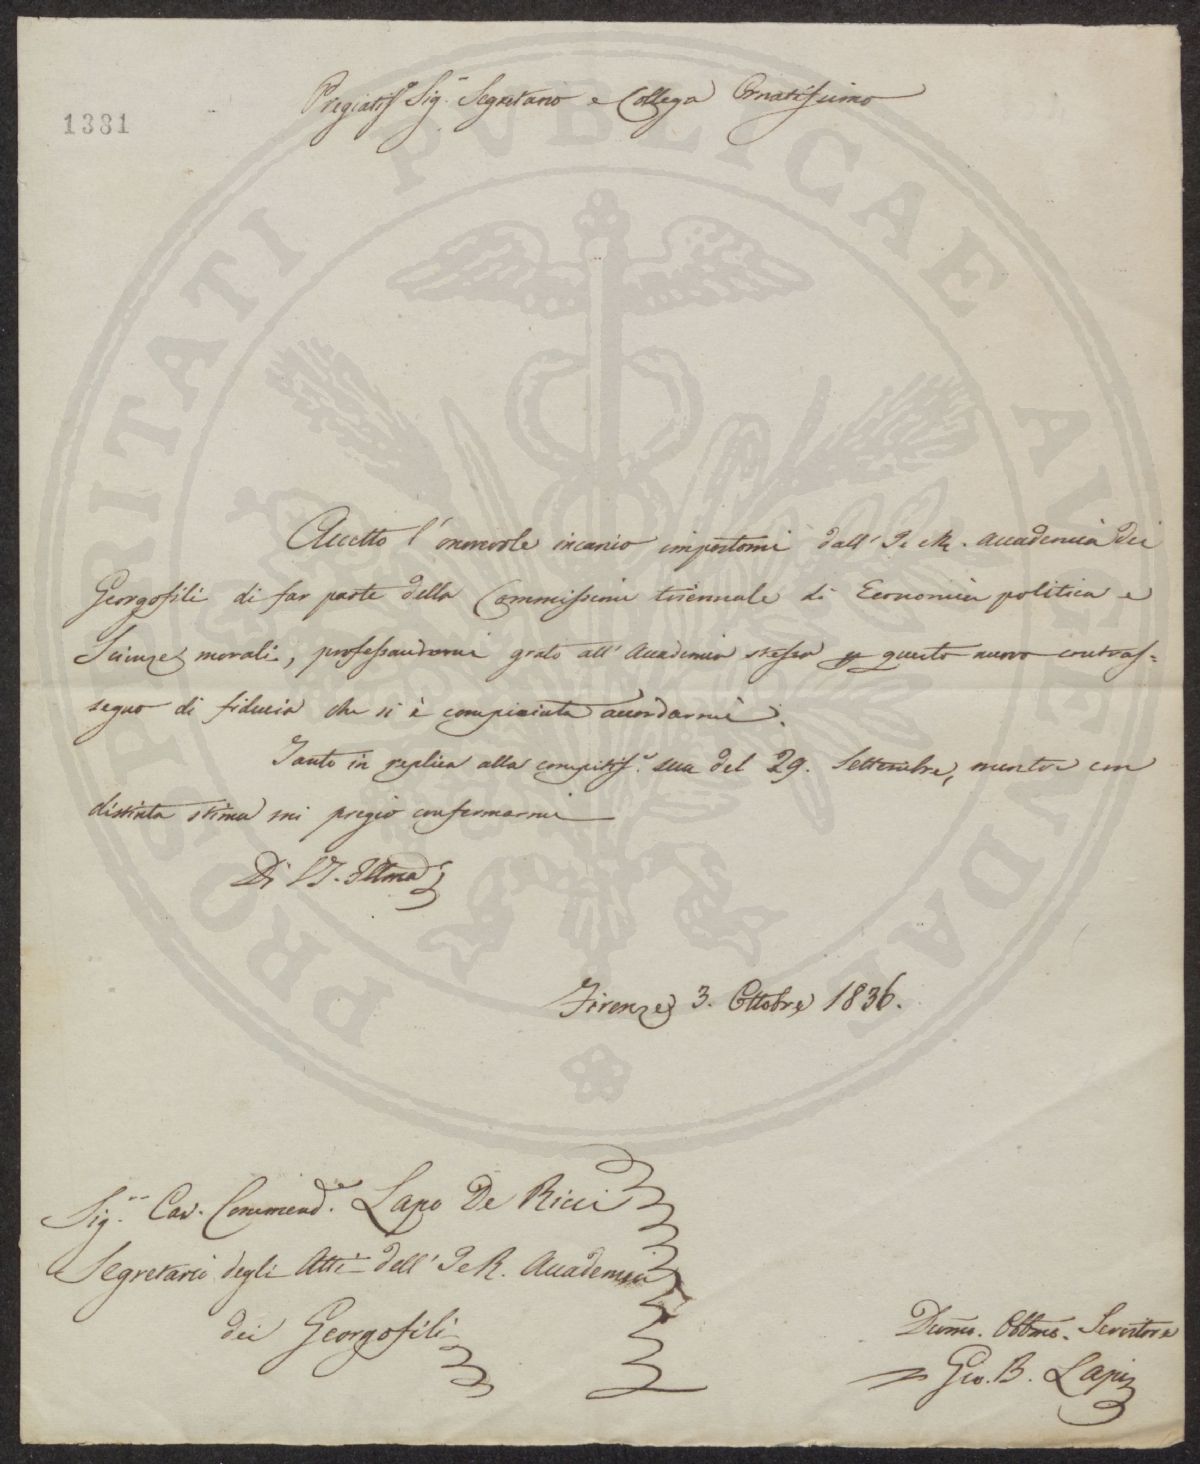 Pregiatis.º Sig.r Segretario e Collega Ornatissimo
1331
PROSPERITATI PVBLICAE AVGENDAE
Accetto l'onorevole incarico impostomi dall' I. e R. Accademia dei
Georgofili di far parte della Commissione triennale di Economia politica e
Scienze morali, professandomi grato all' Accademia stessa p questo nuovo contras=
segno di fiducia che si è compiaciuta accordarmi.
Tanto in replica alla compitis.a sua del 29. Settembre, mentre con
distinta stima mi pregio confermarmi
Di V.S. Illma
Firenze 3. Ottobre 1836.
Sig.r Cav. Commend.e Lapo De Ricci
Segretario degli Atti dell' I e R. Accademia
dei Georgofili
Dvmo. Obbmo. Servitore
Gio. B. Lapi